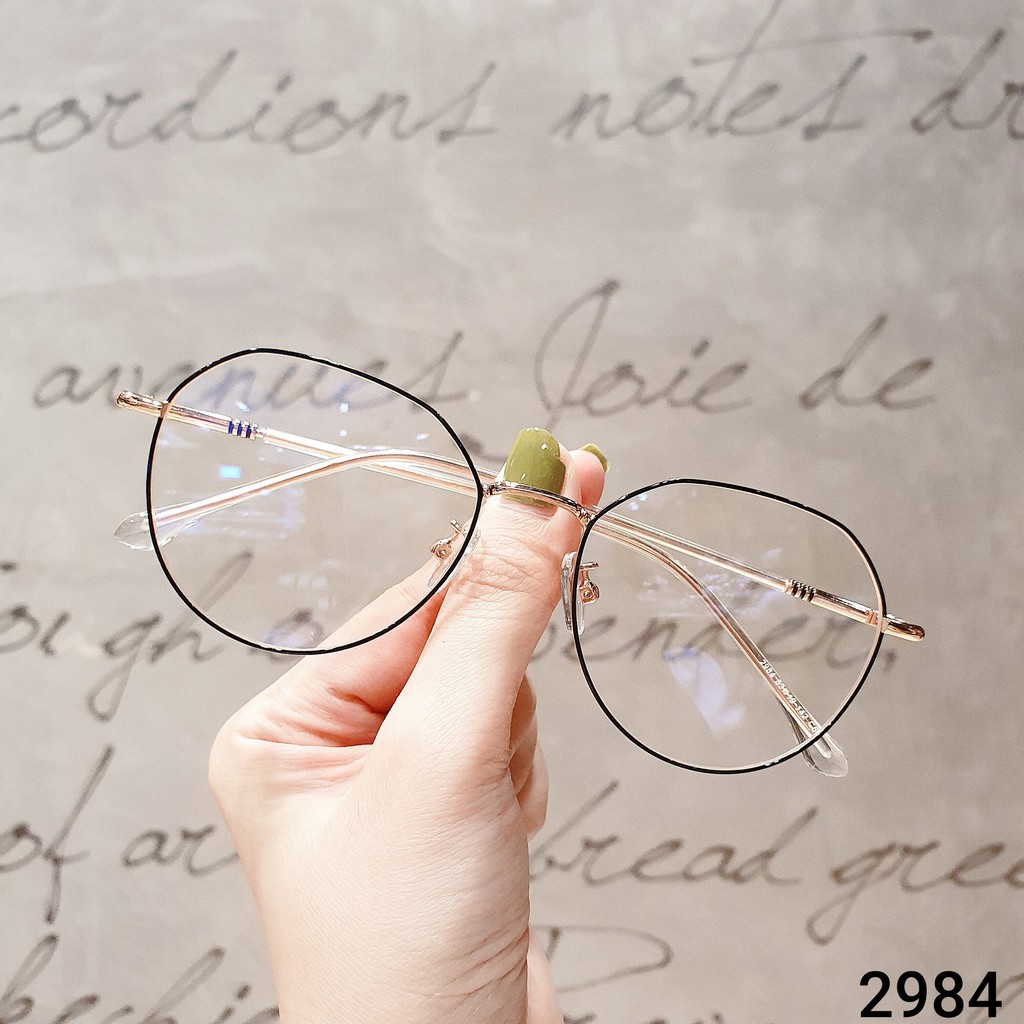 cordions notes dr
avenues Joie de
ough or bender,
of ar bread gree
2984